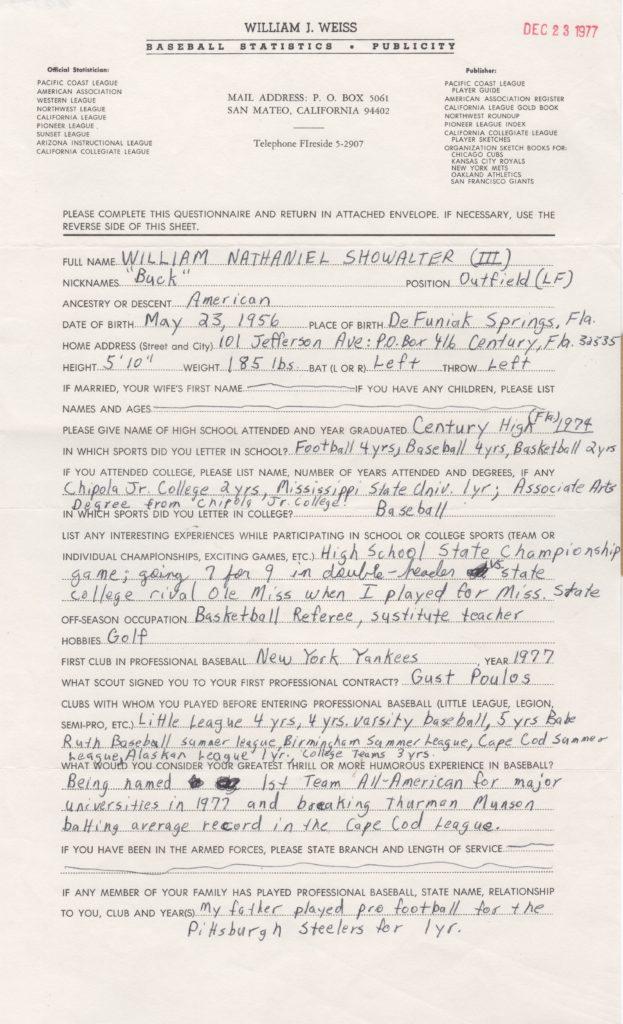 WILLIAM J. WEISS
DEC 23 1977
BASEBALL STATISTICS • PUBLICITY
Official Statistician:
PACIFIC COAST LEAGUE
AMERICAN ASSOCIATION
WESTERN LEAGUE
NORTHWEST LEAGUE
CALIFORNIA LEAGUE
PIONEER LEAGUE
SUNSET LEAGUE
ARIZONA INSTRUCTIONAL LEAGUE
CALIFORNIA COLLEGIATE LEAGUE
MAIL ADDRESS: P. O. BOX 5061
SAN MATEO, CALIFORNIA 94402
Telephone FIreside 5-2907
Publisher:
PACIFIC COAST LEAGUE
PLAYER GUIDE
AMERICAN ASSOCIATION REGISTER
CALIFORNIA LEAGUE GOLD BOOK
NORTHWEST ROUNDUP
PIONEER LEAGUE INDEX
CALIFORNIA COLLEGIATE LEAGUE
PLAYER SKETCHES
ORGANIZATION SKETCH BOOKS FOR:
CHICAGO CUBS
KANSAS CITY ROYALS
NEW YORK METS
OAKLAND ATHLETICS
SAN FRANCISCO GIANTS
PLEASE COMPLETE THIS QUESTIONNAIRE AND RETURN IN ATTACHED ENVELOPE. IF NECESSARY, USE THE
REVERSE SIDE OF THIS SHEET.
FULL NAME WILLIAM NATHANIEL SHOWALTER (III)
NICKNAMES "Buck" POSITION Outfield (LF)
ANCESTRY OR DESCENT American
DATE OF BIRTH May 23, 1956 PLACE OF BIRTH DeFuniak Springs, Fla.
HOME ADDRESS (Street and City) 101 Jefferson Ave: P.O. Box 416 Century, Fla. 32535
HEIGHT 5'10" WEIGHT 185 lbs. BAT (L OR R) Left THROW Left
IF MARRIED, YOUR WIFE'S FIRST NAME IF YOU HAVE ANY CHILDREN, PLEASE LIST
NAMES AND AGES
PLEASE GIVE NAME OF HIGH SCHOOL ATTENDED AND YEAR GRADUATED Century High (Fla) 1974
IN WHICH SPORTS DID YOU LETTER IN SCHOOL? Football 4 yrs, Baseball 4 yrs, Basketball 2 yrs
IF YOU ATTENDED COLLEGE, PLEASE LIST NAME, NUMBER OF YEARS ATTENDED AND DEGREES, IF ANY
Chipola Jr. College 2 yrs, Mississippi State Univ. 1 yr; Associate Arts
Degree from Chipola Jr. College.
IN WHICH SPORTS DID YOU LETTER IN COLLEGE? Baseball
LIST ANY INTERESTING EXPERIENCES WHILE PARTICIPATING IN SCHOOL OR COLLEGE SPORTS (TEAM OR
INDIVIDUAL CHAMPIONSHIPS, EXCITING GAMES, ETC.) High School State Championship
game; going 7 for 9 in double-header vs state
college rival Ole Miss when I played for Miss. State
OFF-SEASON OCCUPATION Basketball Referee, sustitute teacher
HOBBIES Golf
FIRST CLUB IN PROFESSIONAL BASEBALL New York Yankees, YEAR 1977
WHAT SCOUT SIGNED YOU TO YOUR FIRST PROFESSIONAL CONTRACT? Gust Poulos
CLUBS WITH WHOM YOU PLAYED BEFORE ENTERING PROFESSIONAL BASEBALL (LITTLE LEAGUE, LEGION,
SEMI-PRO, ETC.) Little League 4 yrs, 4 yrs. varsity baseball, 5 yrs Babe
Ruth Baseball summer league, Birmingham Summer League, Cape Cod Summer
League, Alaskan League 1 yr. College Teams 3 yrs.
WHAT WOULD YOU CONSIDER YOUR GREATEST THRILL OR MORE HUMOROUS EXPERIENCE IN BASEBALL?
Being named 1st Team All-American for major
universities in 1977 and breaking Thurman Munson
batting average record in the Cape Cod League.
IF YOU HAVE BEEN IN THE ARMED FORCES, PLEASE STATE BRANCH AND LENGTH OF SERVICE
IF ANY MEMBER OF YOUR FAMILY HAS PLAYED PROFESSIONAL BASEBALL, STATE NAME, RELATIONSHIP
TO YOU, CLUB AND YEAR(S) My father played pro football for the
Pittsburgh Steelers for 1 yr.